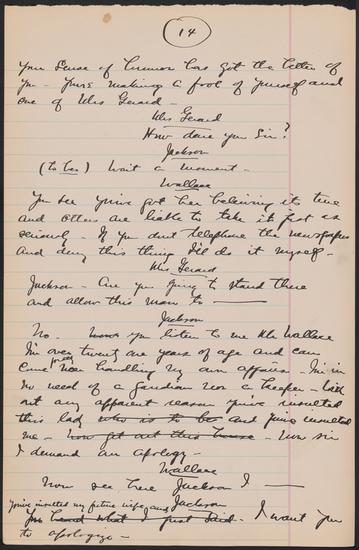 14
Your sense of humor has got the better of
you - You're making a fool of yourself and
one of Mrs Gerard -
Mrs Gerard
How dare you Sir?
Jackson
(to her) Wait a moment -
Wallace
You see you've got her believing its true
and others are liable to take it just as
seriously - If you dont telephone the newspapers
and deny this thing I'll do it myself -
Mrs Gerard
Jackson - Are you going to stand there
and allow this man to ———
Jackson
No. you listen to me Mr Wallace
I'm over twenty one years of age and can
come pretty near handling my own affairs - I'm in
no need of a guardian nor a keeper - With
out any apparent reason you've insulted
this lady who is to be and you've insulted
me - Now get out this house - Now sir
I demand an apology -
Wallace
Now see here Jackson I ———
Jackson
You've insulted my future wife and
You heard what I just said - I want you
to apologize -